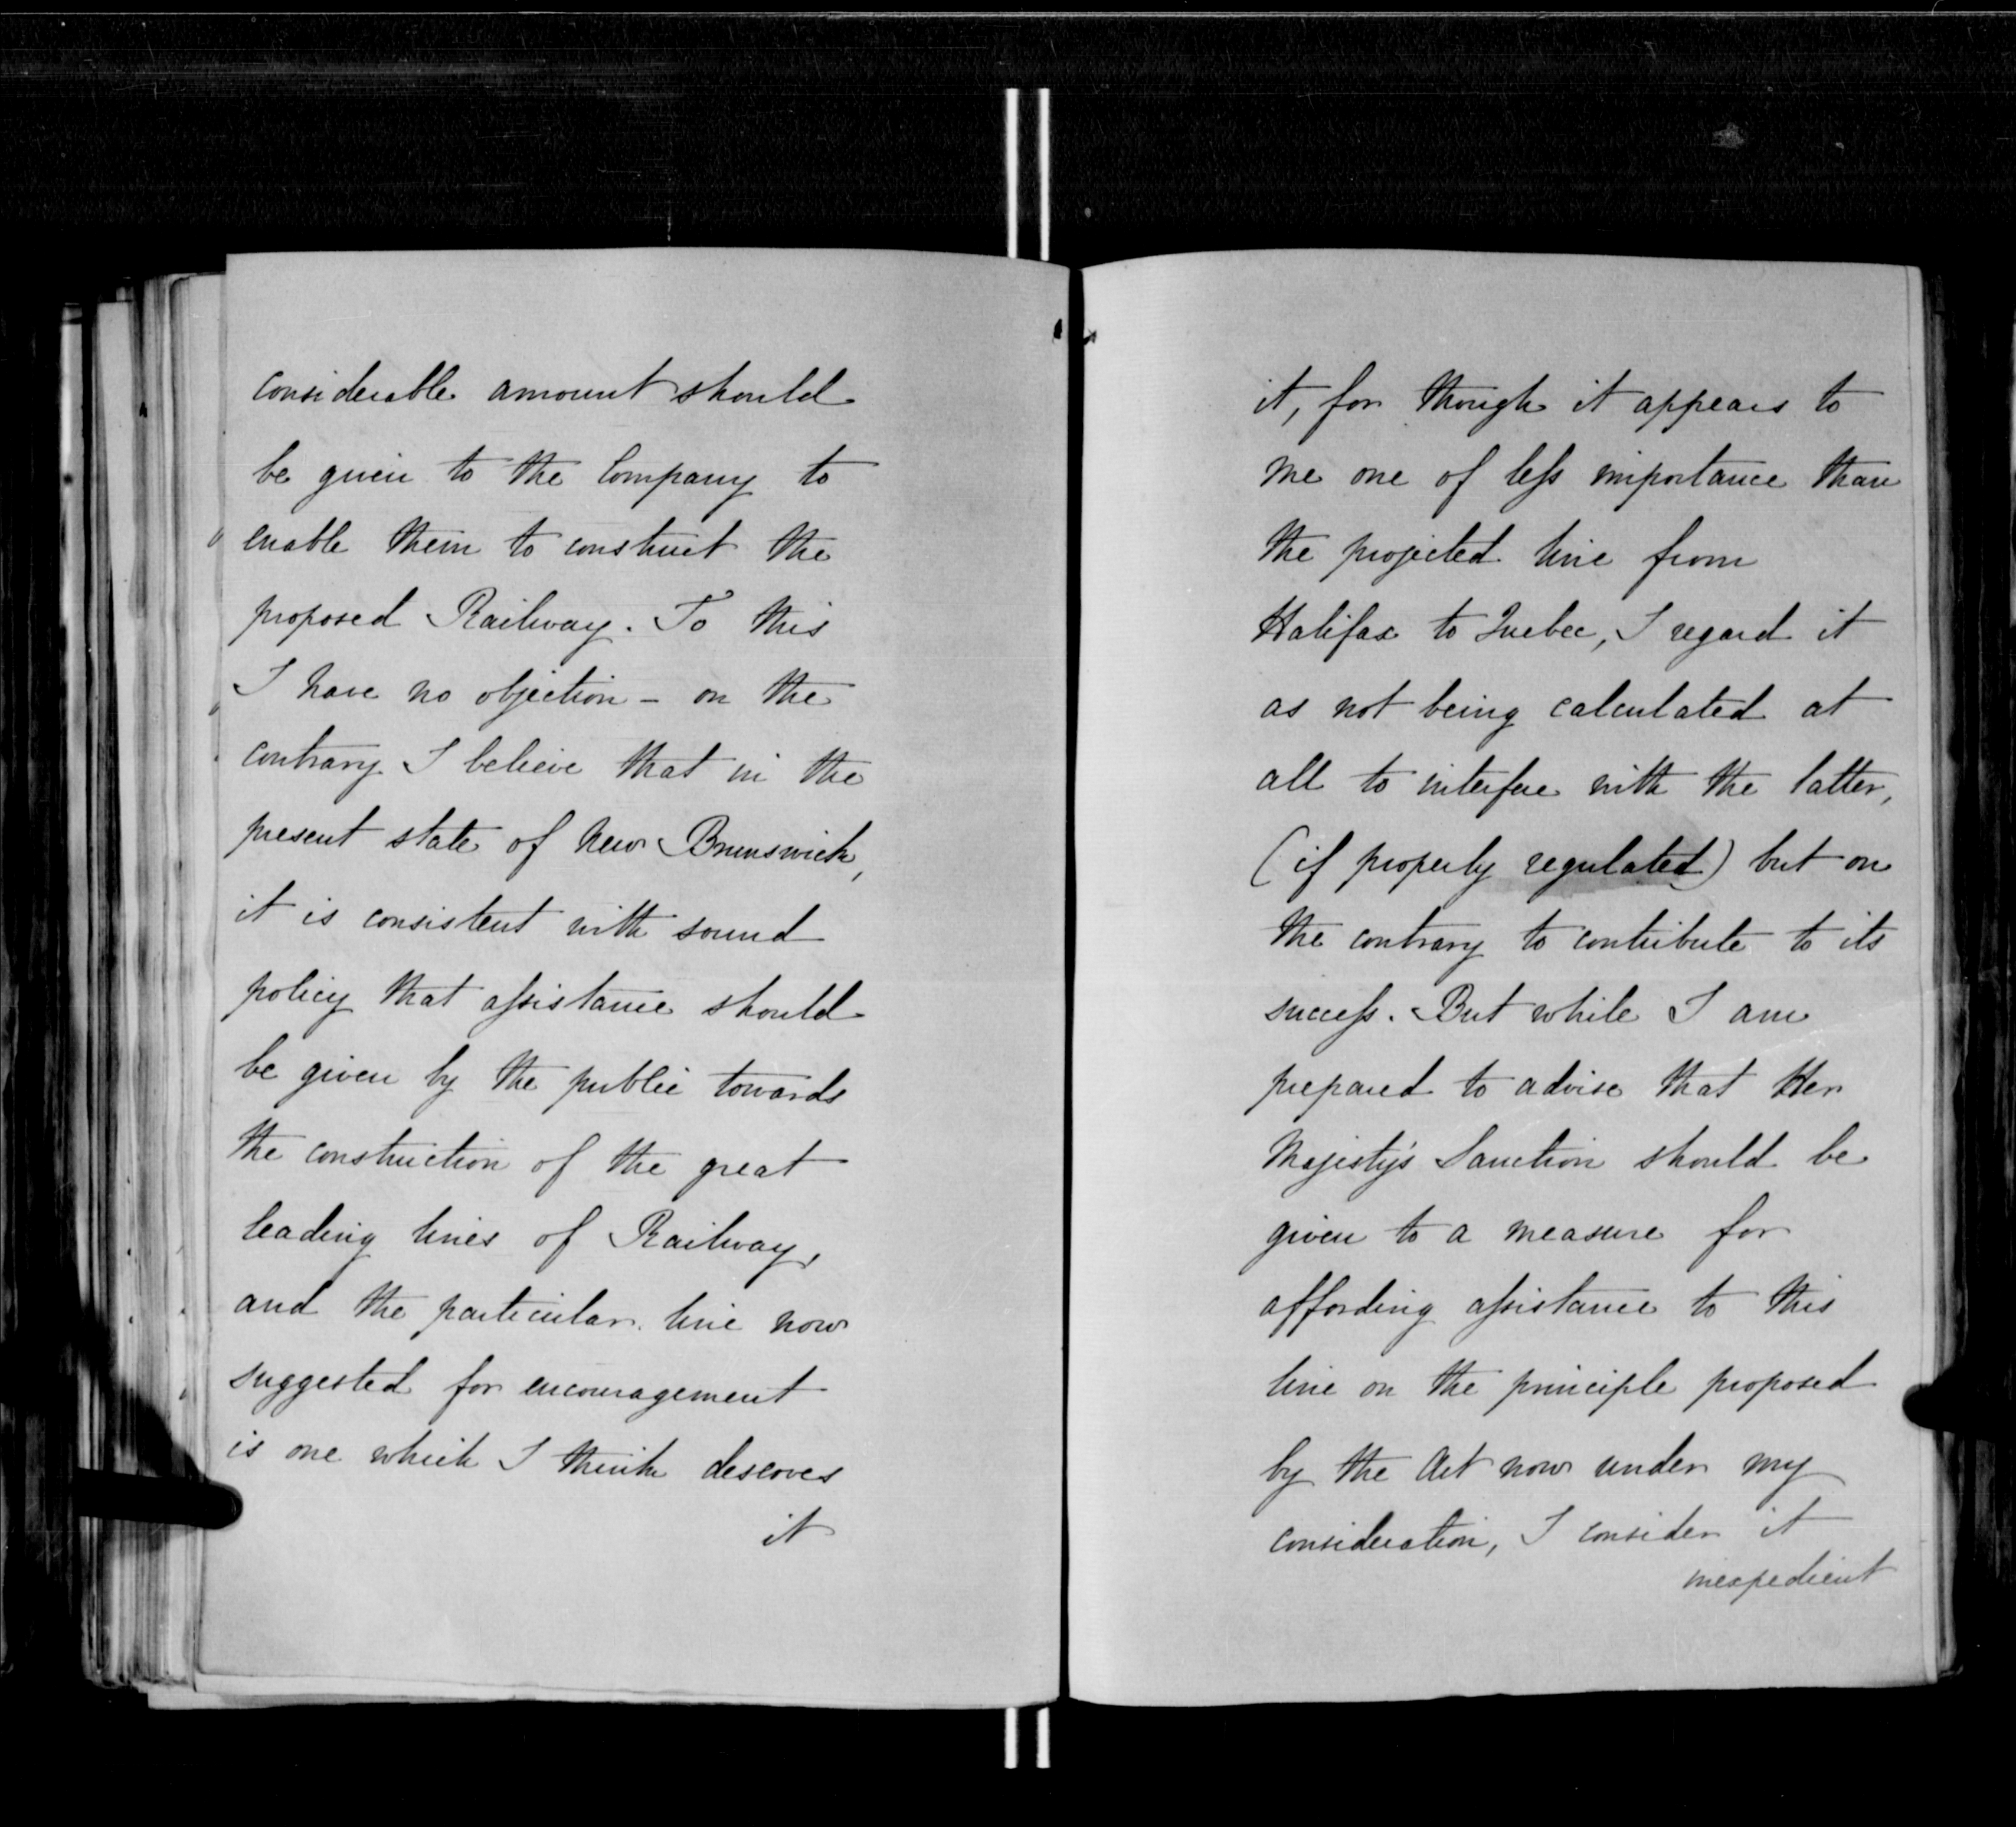 considerable amount should
be given to the Company to
enable them to construct the
proposed Railway. To this
I have no objection - on the
contrary I believe that in the
present state of New Brunswick,
it is consistent with sound
policy that assistance should
be given by the public towards
the construction of the great
leading lines of Railway,
and the particular line now
suggested for encouragement
is one which I think deserves
it
it, for though it appears to
me one of less importance than
the projected line from
Halifax to Quebec, I regard it
as not being calculated at
all to interfere with the latter,
(if properly regulated) but on
the contrary to contribute to its
success. But while I am
prepared to advise that Her
Majesty's Sanction should be
given to a measure for
affording assistance to this
line on the principle proposed
by the Act now under my
consideration, I consider it
inexpedient